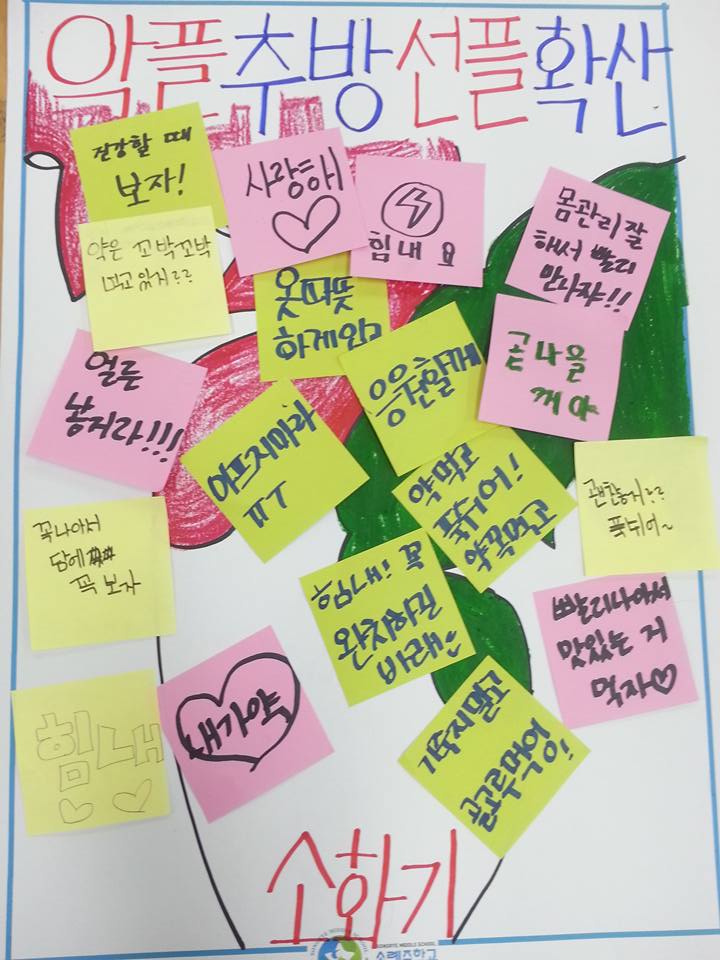 악플추방선플확산
건강할 때
보자!
사랑해
힘내요
몸관리잘
해서 빨리
만나쟈!!
약은 꼬박꼬박
먹고 있지??
옷따뜻
하게입고
응원할께
곧 나을
꺼야
얼른
낳거라!!!
아프지마라
ㅠㅜ
약먹고
푹쉬어!
약꼭먹고
푹쉬어~
꼭나아서
담에
꼭 보자
힘내! 꼭
완치하길
바래
빨리나아서
맛있는 거
먹자♡
힘내
내가약
골고루먹엉!
소화기
MIDDLE SCHOOL